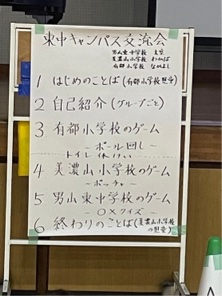 東中キャンパス交流会
男山東中学校
美濃山小学校
有都小学校
1 はじめのことば(有都小学校
2 自己紹介(グループごと)
3 有都小学校のゲーム
－ボール回し－
トイレ休けい
4 美濃山小学校のゲーム
－ボッチャ－
5 男山東中学校のゲーム
－〇×クイズ－
6 終わりのことば(美濃山小学校